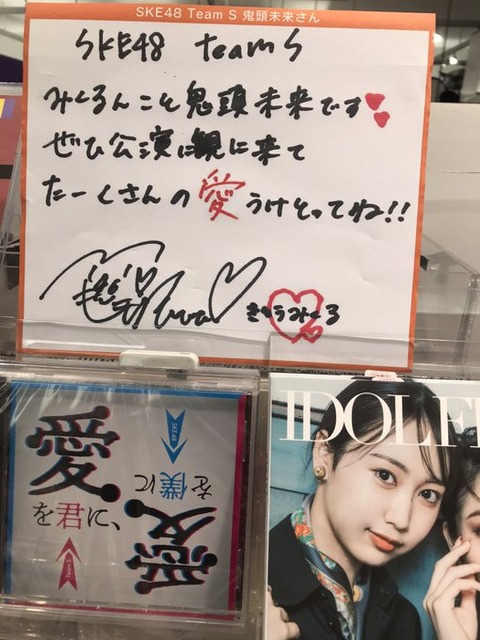 SKE48 Team S 鬼頭未来さん
SKE48 teamS
みくるんこそ鬼頭未来です
ぜひ公演に観に来て
たーくさんの愛うけとってね!!
きとうみくる
SKE48
愛
を君に、
愛
を僕に
IDOL